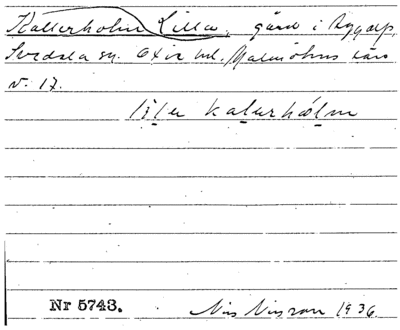 Källerholm Lilla, gård i Aggarp,
Svedala sn. Oxie hd. Malmöhus län
v. 17.
lilə kalərhólm
Nr 5743.
Nils Nilsson 1936.